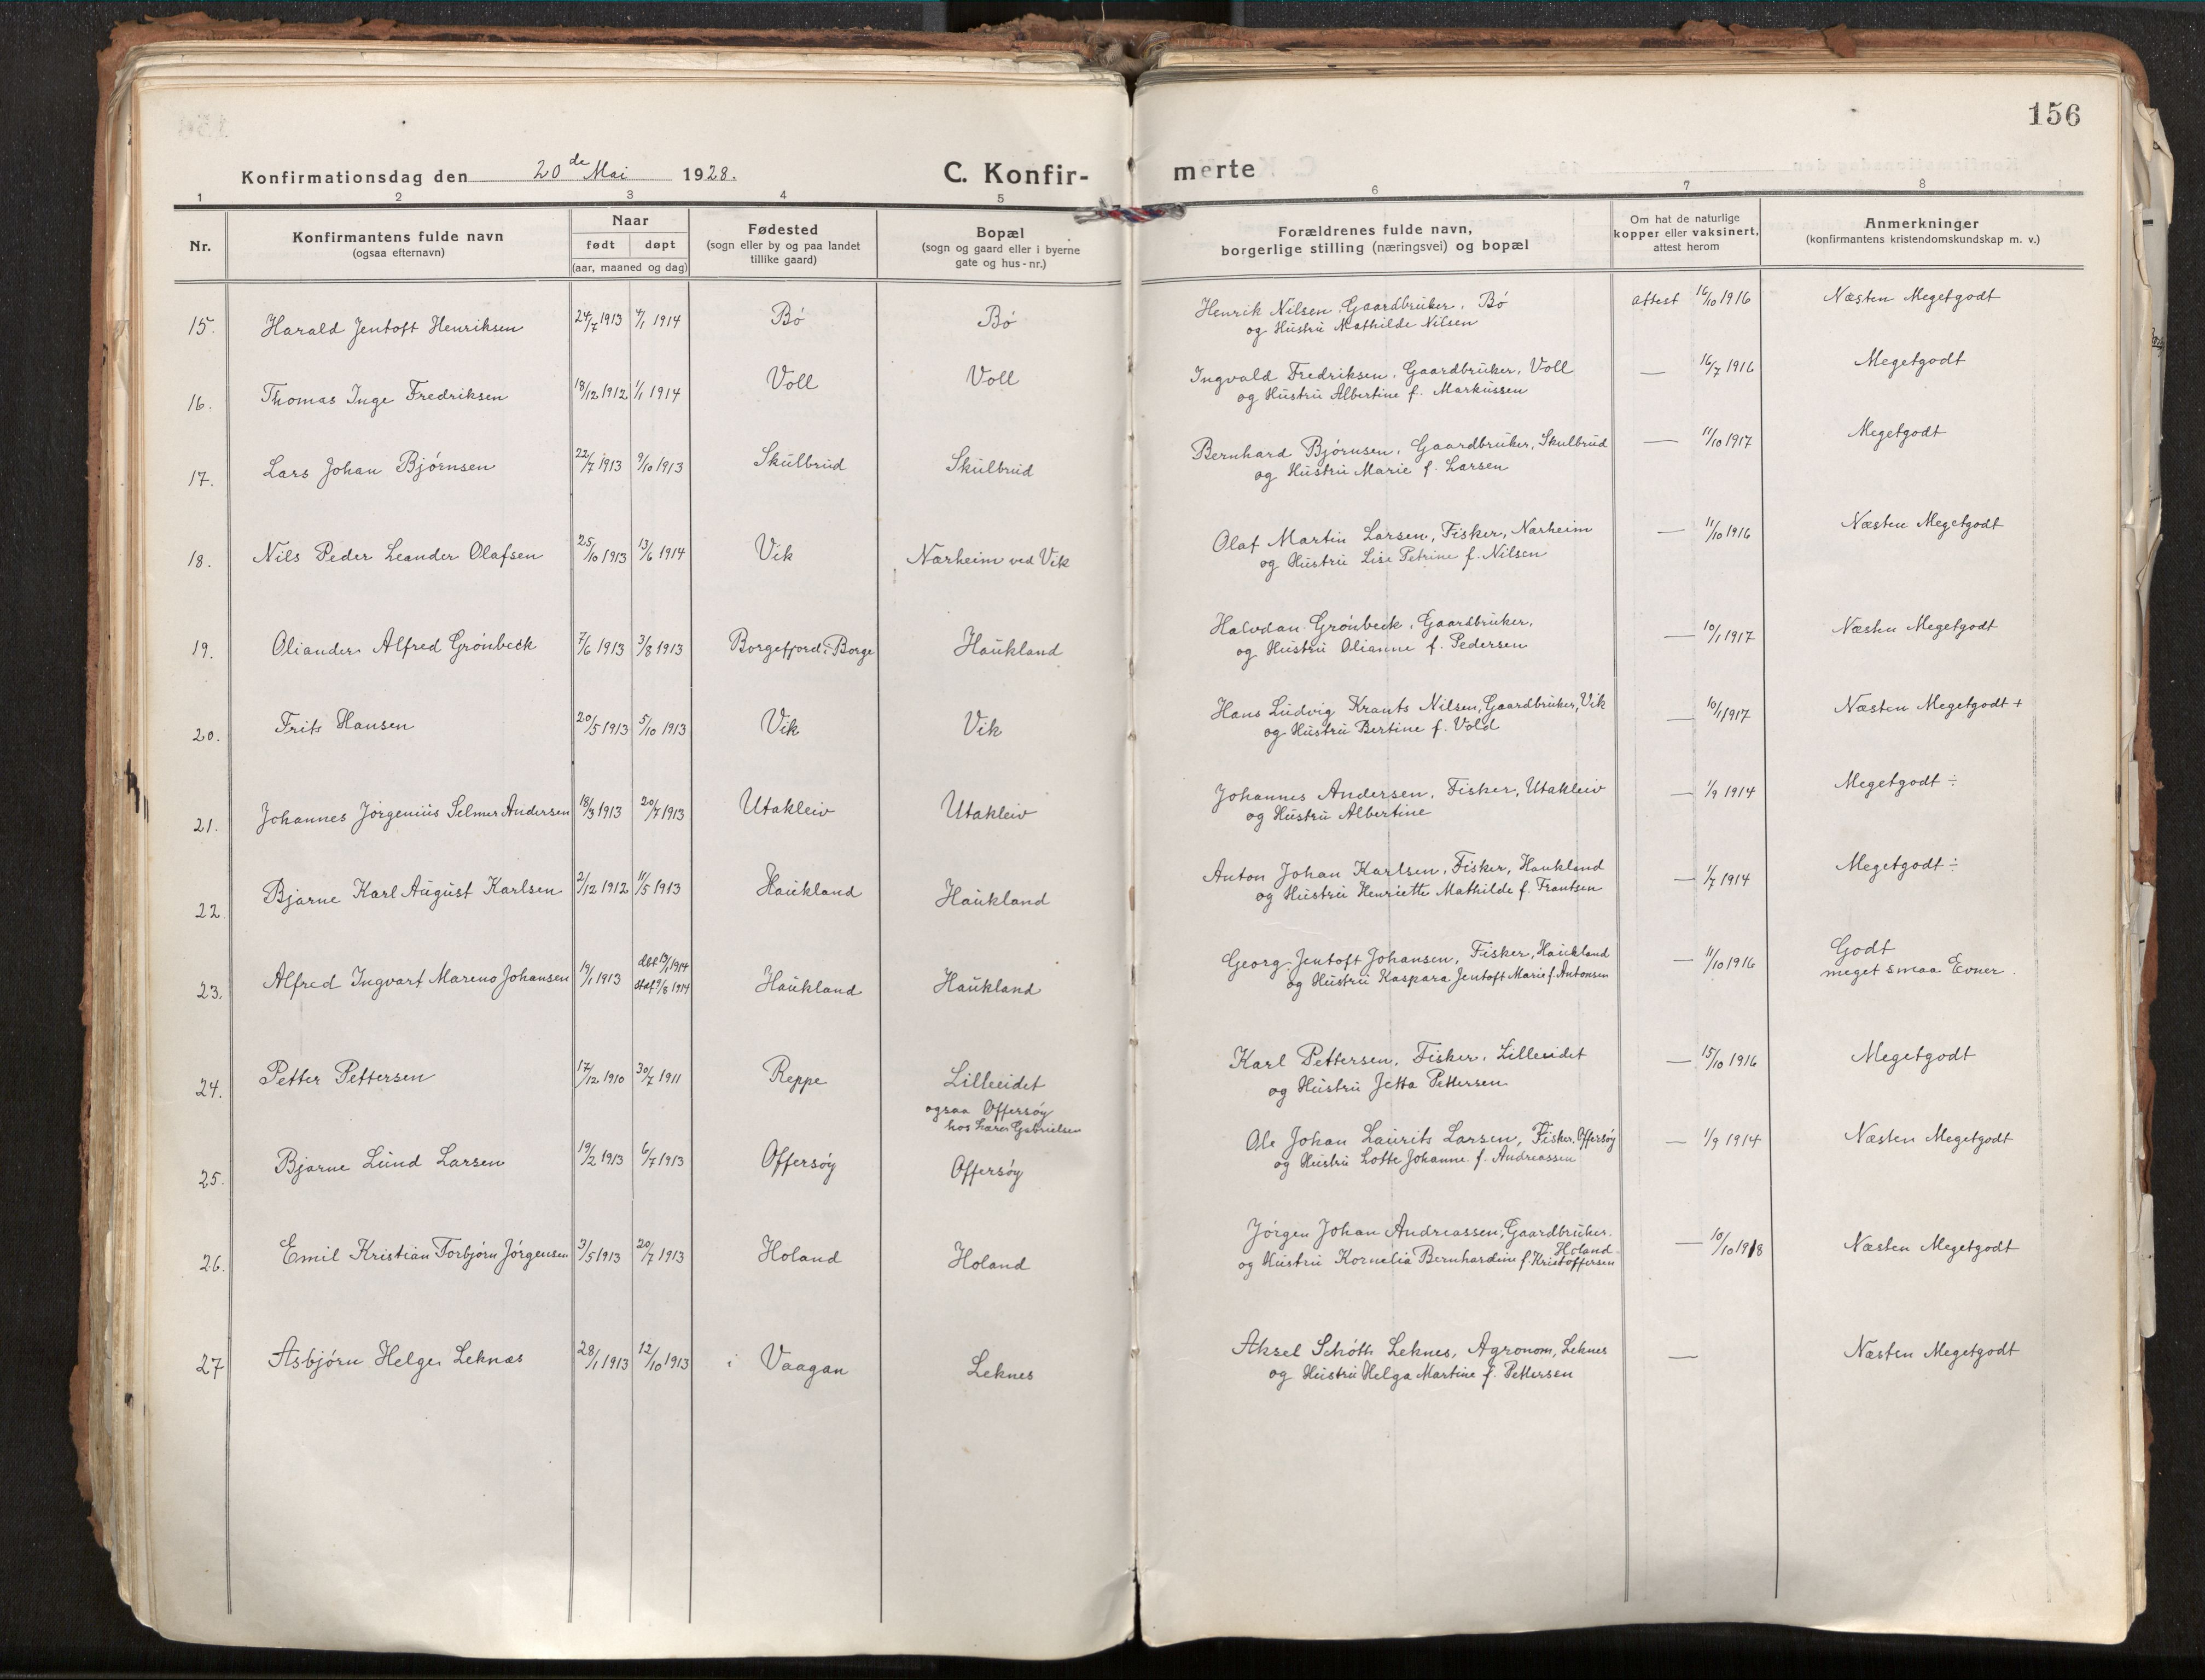 156
Konfirmationsdag den 20de Mai 1928.
C. Konfirmerte
1 2 3 4 5 6 7 8
Nr.
Konfirmantens fulde navn
(ogsaa efternavn)
Naar
født døpt
(aar, maaned og dag)
Fødested
(sogn eller by og paa landet
tillike gaard)
Bopæl
(sogn og gaard eller i byerne
gate og hus-nr.)
Forældrenes fulde navn,
borgerlige stilling (næringsvei) og bopæl
Om hat de naturlige
kopper eller vaksinert,
attest herom
Anmerkninger
(konfirmantens kristendomskundskap m. v.)
15. Harald Jentoft Henriksen 24/7 1913 4/1 1914 Bö Bö Henrik Nilsen, Gaardbruker, Bö attest 16/10 1916 Næsten Megetgodt
og Hustru Mathilde Nilsen
16. Thomas Inge Fredriksen 18/12 1912 1/1 1914 Voll Voll Ingvald Fredriksen, Gaardbruker, Voll — 16/7 1916 Megetgodt
og Hustru Albertine f. Markussen
17. Lars Johan Bjørnsen 22/7 1913 9/10 1913 Skulbrud Skulbrud Bernhard Bjørnsen, Gaardbruker, Skulbrud — 11/10 1917 Megetgodt
og Hustru Marie f. Larsen
18. Nils Peder Leander Olafsen 25/10 1913 13/6 1914 Vik Nærheim ved Vik Olaf Martin Larsen, Fisker, Nærheim — 11/10 1916 Næsten Megetgodt
og Hustru Lise Petrine f. Nilsen
19. Oliander Alfred Grönbeck 7/6 1913 3/8 1913 Borgefjord i Borge Haukland Halvdan Grönbeck, Gaardbruker, — 10/1 1917 Næsten Megetgodt
og Hustru Olianne f. Pedersen
20. Frits Hansen 20/5 1913 5/10 1913 Vik Vik Hans Ludvig Krants Nilsen, Gaardbruker, Vik — 10/1 1917 Næsten Megetgodt +
og Hustru Bertine f. Vold
21. Johannes Jørgenius Selmer Andersen 18/3 1913 20/7 1913 Utakleiv Utakleiv Johannes Andersen, Fisker, Utakleiv — 1/9 1914 Megetgodt ÷
og Hustru Albertine
22. Bjarne Karl August Karlsen 2/12 1912 11/5 1913 Haukland Haukland Anton Johan Karlsen, Fisker, Haukland — 1/7 1914 Megetgodt ÷
og Hustru Henriette Mathilde f. Frantsen
23. Alfred Ingvart Mareno Johansen 19/1 1913 1914 1914 Haukland Haukland Georg Jentoft Johansen, Fisker, Haukland — 11/10 1916 Godt
og Hustru Kaspara Jentoft Marie f. Antonsen meget smaa Evner.
24. Petter Pettersen 17/12 1910 30/7 1911 Reppe Lilleeidet Karl Pettersen, Fisker, Lilleeidet — 15/10 1916 Megetgodt
ogsaa Offersöy og Hustru Jetta Pettersen
hos Gabrielsen
25. Bjarne Lund Larsen 19/2 1913 6/7 1913 Offersöy Offersöy Ole Johan Laurits Larsen, Fisker, Offersöy — 1/9 1914 Næsten Megetgodt
og Hustru Lotte Johanne f. Andreassen
26. Emil Kristian Torbjörn Jörgensen 3/5 1913 20/7 1913 Holand Holand Jörgen Johan Andreassen, Gaardbruker. — 10/10 1918 Næsten Megetgodt
Holand
og Hustru Kornelia Bernhardine f. Kristoffersen
27 Asbjörn Helge Leknes 28/1 1913 12/10 1913 i Vaagan Leknes Aksel Schöth Leknes, Agronom, Leknes — Næsten Megetgodt
og Hustru Helga Martine f. Pettersen